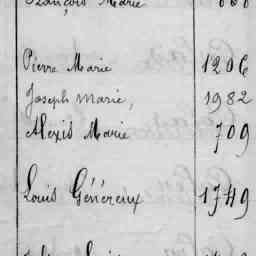 François Marie
Pierre Marie 1206
Joseph Marie, 1982
Alexis Marie 709
Louis Généreux 1749